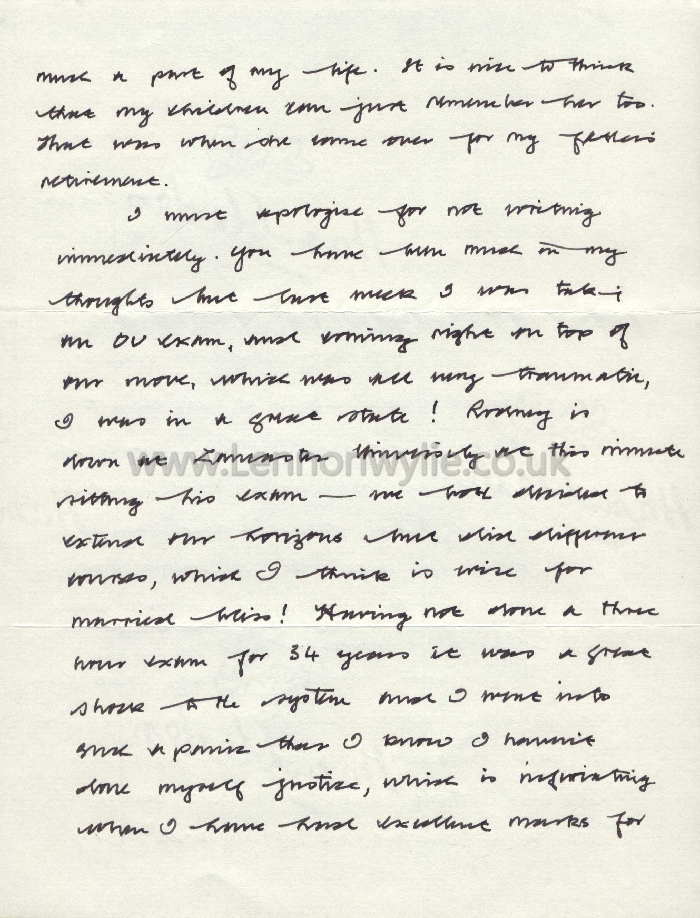 much a part of my life. It is nice to think
that my children can just remember her too.
That was when she came over for my father's
retirement.
I must apologise for not writing
immediately. You have been much in my
thoughts but last week I was taking
an OU exam, and coming right on top of
our move, which was all very traumatic,
I was in a great state! Rodney is
down at Lancaster University at this minute
sitting his exam — we both decided to
extend our horizons but did different
courses, which I think is wise for
married bliss! Having not done a three
hour exam for 34 years it was a great
shock to the system and I went into
such a panic that I know I haven't
done myself justice, which is infuriating
when I have had excellent marks for
www.Lennonwylie.co.uk